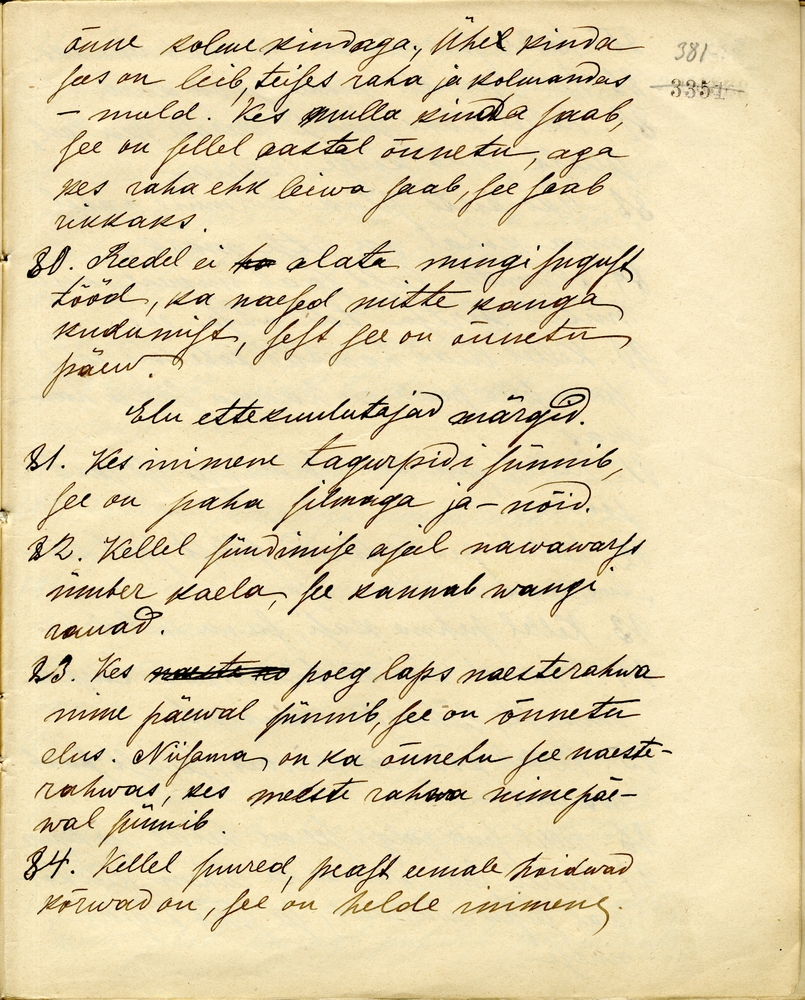 õnne kolme kindaga, Ühel kinda
sees on leib, teises raha ja kolmandas
— muld. Kes mulla kinda saab,
see on sellel aastal õnnetu, aga
kes raha ehk leiwa saab, see saab
rikkaks.
30. Reedel ei alata mingisugust
tööd, ka naesed mitte kanga
kudumist, sest see on õnnetu
päew.
Elu ettekuulutajad märgid.
31. Kes inimene tagurpidi sünnib,
see on paha silmaga ja – nõid.
32. Kellel sündimise ajal nawawars
ümber kaela, see kannab wangi
rauad.
33. Kes poeg laps naesterahwa
nime päewal sünnib, see on õnnetu
elus. Niisama on ka õnnetu see naeste-
rahwas, kes meeste rahwa nimepäe-
wal sünnib.
34. Kellel suured, peast eemale hoidwad
kõrwad on, see on helde inimene.
381
3351